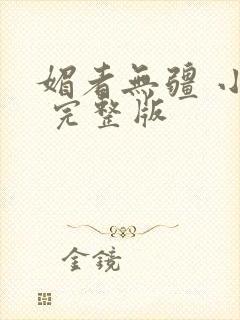 媚者無疆 小
完整版
金鏡